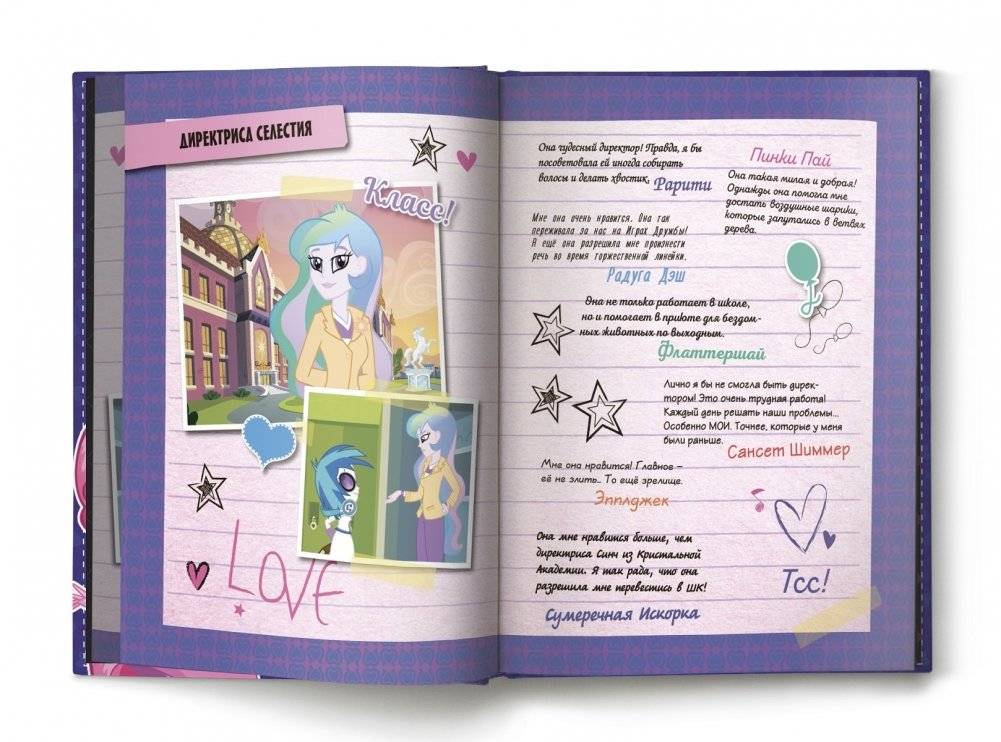 ДИРЕКТРИСА СЕЛЕСТИЯ
Класс!
LOVE
Она чудесный директор! Правда, я бы
посоветовала ей иногда собирать
волосы и делать хвостик,
Рарити
Пинки Пай
Она такая милая и добрая!
Однажды она помогла мне
достать воздушные шарики,
которые запутались в ветвях
дерева.
Мне она очень нравится. Она так
переживала за нас на Играх Дружбы!
А ещё она разрешила мне произнести
речь во время торжественной линейки.
Радуга Дэш
Она не только работает в школе,
но и помогает в приюте для бездом-
ных животных по выходным.
Флаттершай
Лично я бы не смогла быть дирек-
тором! Это очень трудная работа!
Каждый день решать наши проблемы...
Особенно МОИ. Точнее, которые у меня
были раньше.
Сансет Шиммер
Мне она нравится! Главное –
её не злить.. То ещё зрелище.
Эпплджек
Она мне нравится больше, чем
директриса Синч из Кристальной
Академии. Я так рада, что она
разрешила мне перевестись в ШК!
Сумеречная Искорка
Тсс!